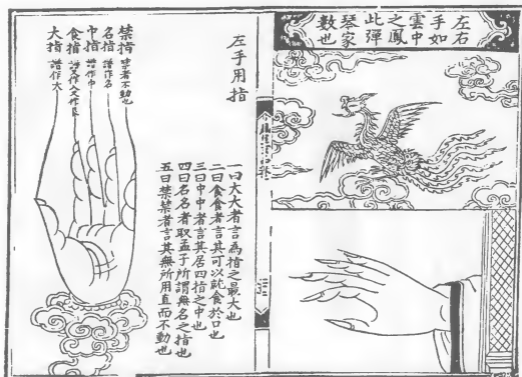 左右
手如
雲中
之鳳
此彈
琴家
數也
左手用指
一曰大大者言為指之最大也
二曰食食者言其可以飥食於口也
三曰中中者言其居四指之中也
四曰名名者取孟子所謂無名之指也
五曰禁禁者言其無所用直而不動也
禁指 禁者不動也
名指 譜作名
中指 譜作中
食指
大指 譜作大